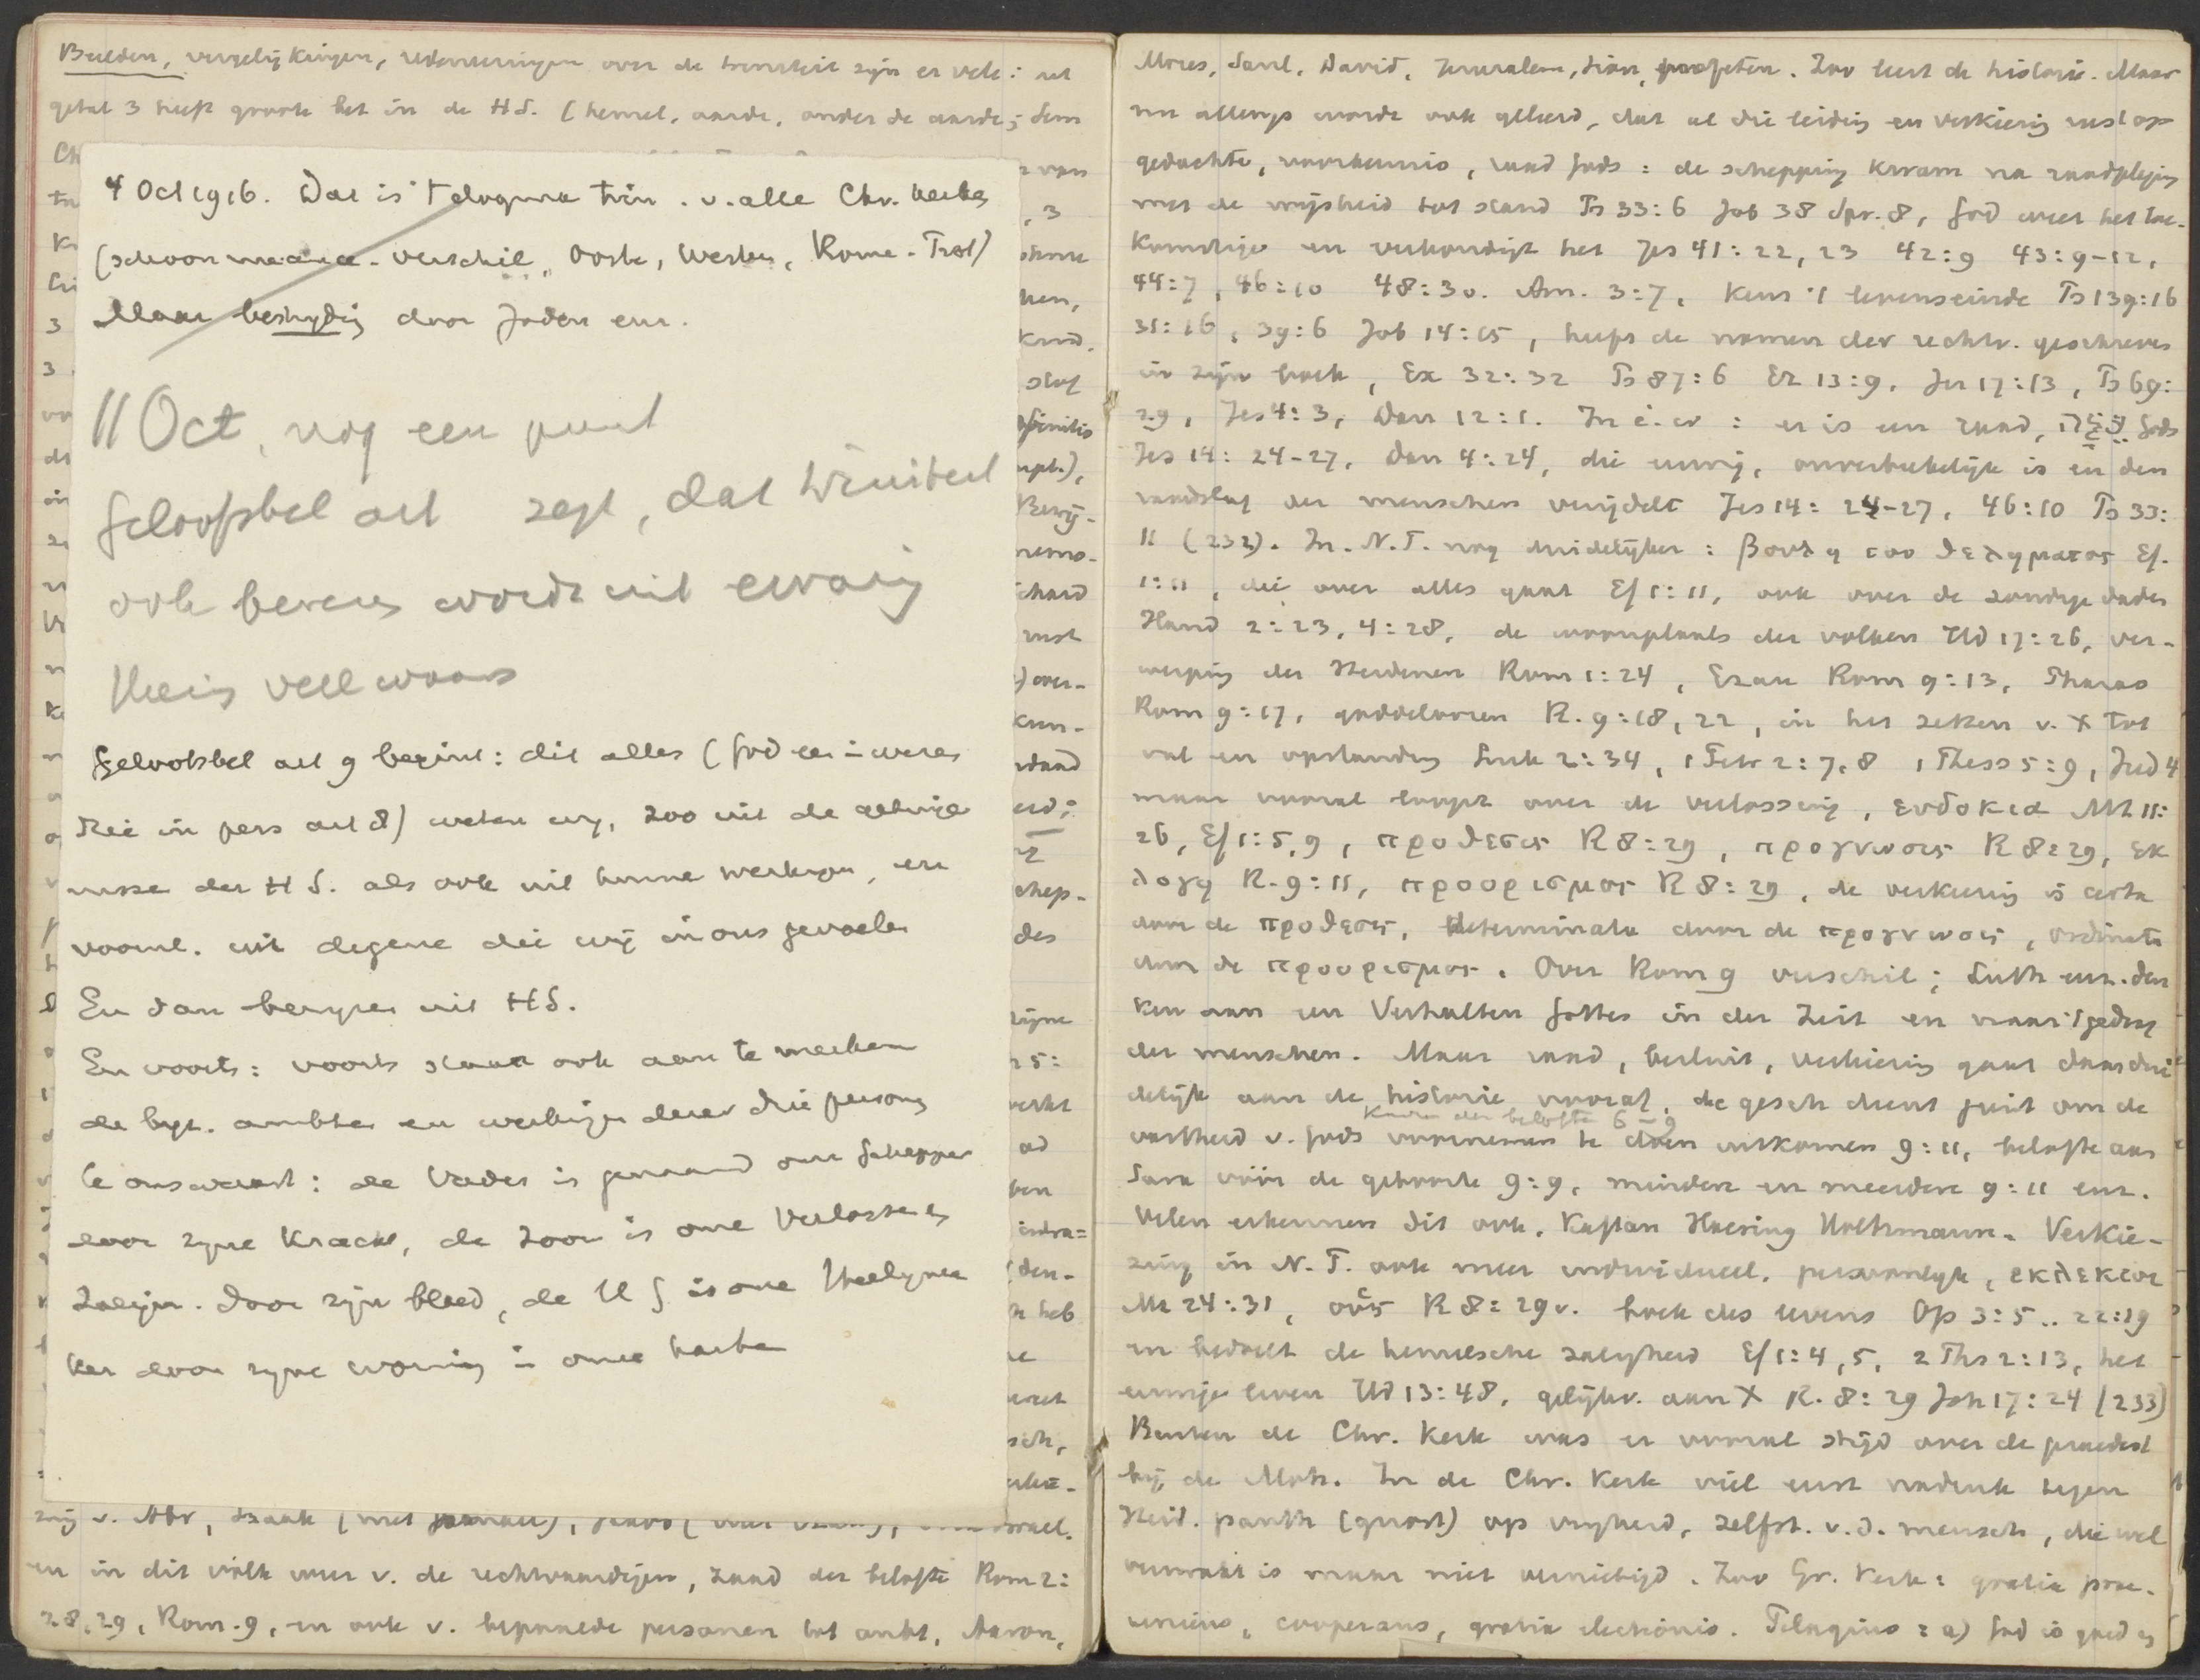 Beelden, vergelijkingen, redeneeringen over de drieheid zijn er vele: het
getal 3 heeft groote bet in de HS. (hemel, aarde, onder de aarde; Sem
4 Oct 1916. Dat is 't dogma trin. v. alle Chr. kerken
(schoon verschil, Ooste, Westen, Rome - Prot)
Maar bestrijding door Joden enz.
11 Oct, nog een punt
Geloofsbel art zegt, dat triniteit
ook bewezen wordt uit ervaring
Geloofsbel art 9 begint: dit alles (God een in wezen
drie in pers art 8) weten wij, zoo uit de getuige
nissen der H S. als ook uit hunne werkingen, en
voornl. uit degene die wij in ons gevoelen
En dan bewijzen uit HS.
En voorts: voorts staat ook aan te merken
de byz. ambten en werkingen dezer drie personen
te onswaart: de Vader is genaamd onze Schepper
door zijne kracht, de Zoon is onze Verlosser en
Zaligm. door zijn bloed, de H G is onze Heiligma
ker door zijne woning in onze harten
zing v. Abr, Izaak (niet
en in dit volk weer v. de rechtvaardigen, zaad der belofte Rom 2:
28, 29, Rom. 9, en ook v. bepaalde personen tot ambt, Aaron,
Mozes, Saul, David, Jeruzalem, Sion, profeten. Zoo leert de historie. Maar
nu allengs wordt ook geleerd, dat al die leiding en verkiezing rust op
gedachte, voorkennis, raad Gods: de schepping kwam na raadpleging
met de wijsheid tot stand Ps 33:6 Job 38 Spr. 8, God weet het toe-
komstige en verkondigt het Jes 41:22, 23 42:9 43:9-12,
44:7, 46:10 48:3v. Am. 3:7, kent 't levenseinde Ps 139:16
31:16, 39:6 Job 14:5, heeft de namen der rechtv. geschreven
in zijn boek, Ex 32:32 Ps 87:6 Ez 13:9, Jer 17:13, Ps 69:
29, Jes 4:3, Dan 12:1. In é. w: er is een raad, עֵצָה Gods
Jes 14:24-27, Dan 4:24, die eeuwig, onverbrekelijk is en den
raadslag der menschen verijdelt Jes 14:24-27, 46:10 Ps 33:
11 (232). In N.T. nog duidelijker: βουλη του θεληματος Ef.
1:11, die over alles gaat Ef 1:11, ook over de zondige daden
Hand 2:23, 4:28, de woonplaats der volken Hd 17:26, ver-
werping der Heidenen Rom 1:24, Ezau Rom 9:13, Pharao
Rom 9:17, goddeloozen R. 9:18, 22, in het zetten v. X tot
val en opstanding Luk 2:34, 1 Petr 2:7,8 1 Thess 5:9, Jud 4
maar vooral loopt over de verlossing, ευδοκια Mt 11:
26, Ef 1:5,9, προθεσις R 8:29, προγνωσις R 8:29, εκ
λογη R. 9:11, προορισμος R 8:29, de verkiezing is certa
door de προθεσις, determinata door de προγνωσις, ordinata
door de προορισμος. Over Rom 9 verschil; Luth enz. den
ken aan een Verhalten Gottes in der Zeit en naar 't gedrag
der menschen. Maar raad, besluit, verkiezing gaat daar dui
delijk aan de historie vooraf, de gesch dient juist om de
kinderen der belofte 6-9
vastheid v. Gods voornemen te doen uitkomen 9:11, belofte aan
Sara vóór de geboorte 9:9, mindere en meerdere 9:11 enz.
Velen erkennen dit ook. Kaftan Haering Holtzmann. Verkie-
zing in N. T. ook meer individueel, persoonlijk, εκλεκτοι
Mt 24:31, οὓς R 8:29v. boek des levens Op 3:5.. 22:19
en bedoelt de hemelsche zaligheid Ef 1:4,5, 2 Ths 2:13, het
eeuwige leven Hd 13:48, gelijkv. aan X R. 8:29 Joh 17:24 (233)
Buiten de Chr. Kerk was er vooral strijd over de praedest
bij de Moh. In de Chr. Kerk viel eerst nadruk tegen
Heid. panth (gnost) op vrijheid, zelfst. v. d. mensch, die wel
verzwakt is maar niet vernietigd. Zoo Gr. Kerk: gratia prae-
veniens, cooperans, gratia electionis. Pelagius: a) God is goed en